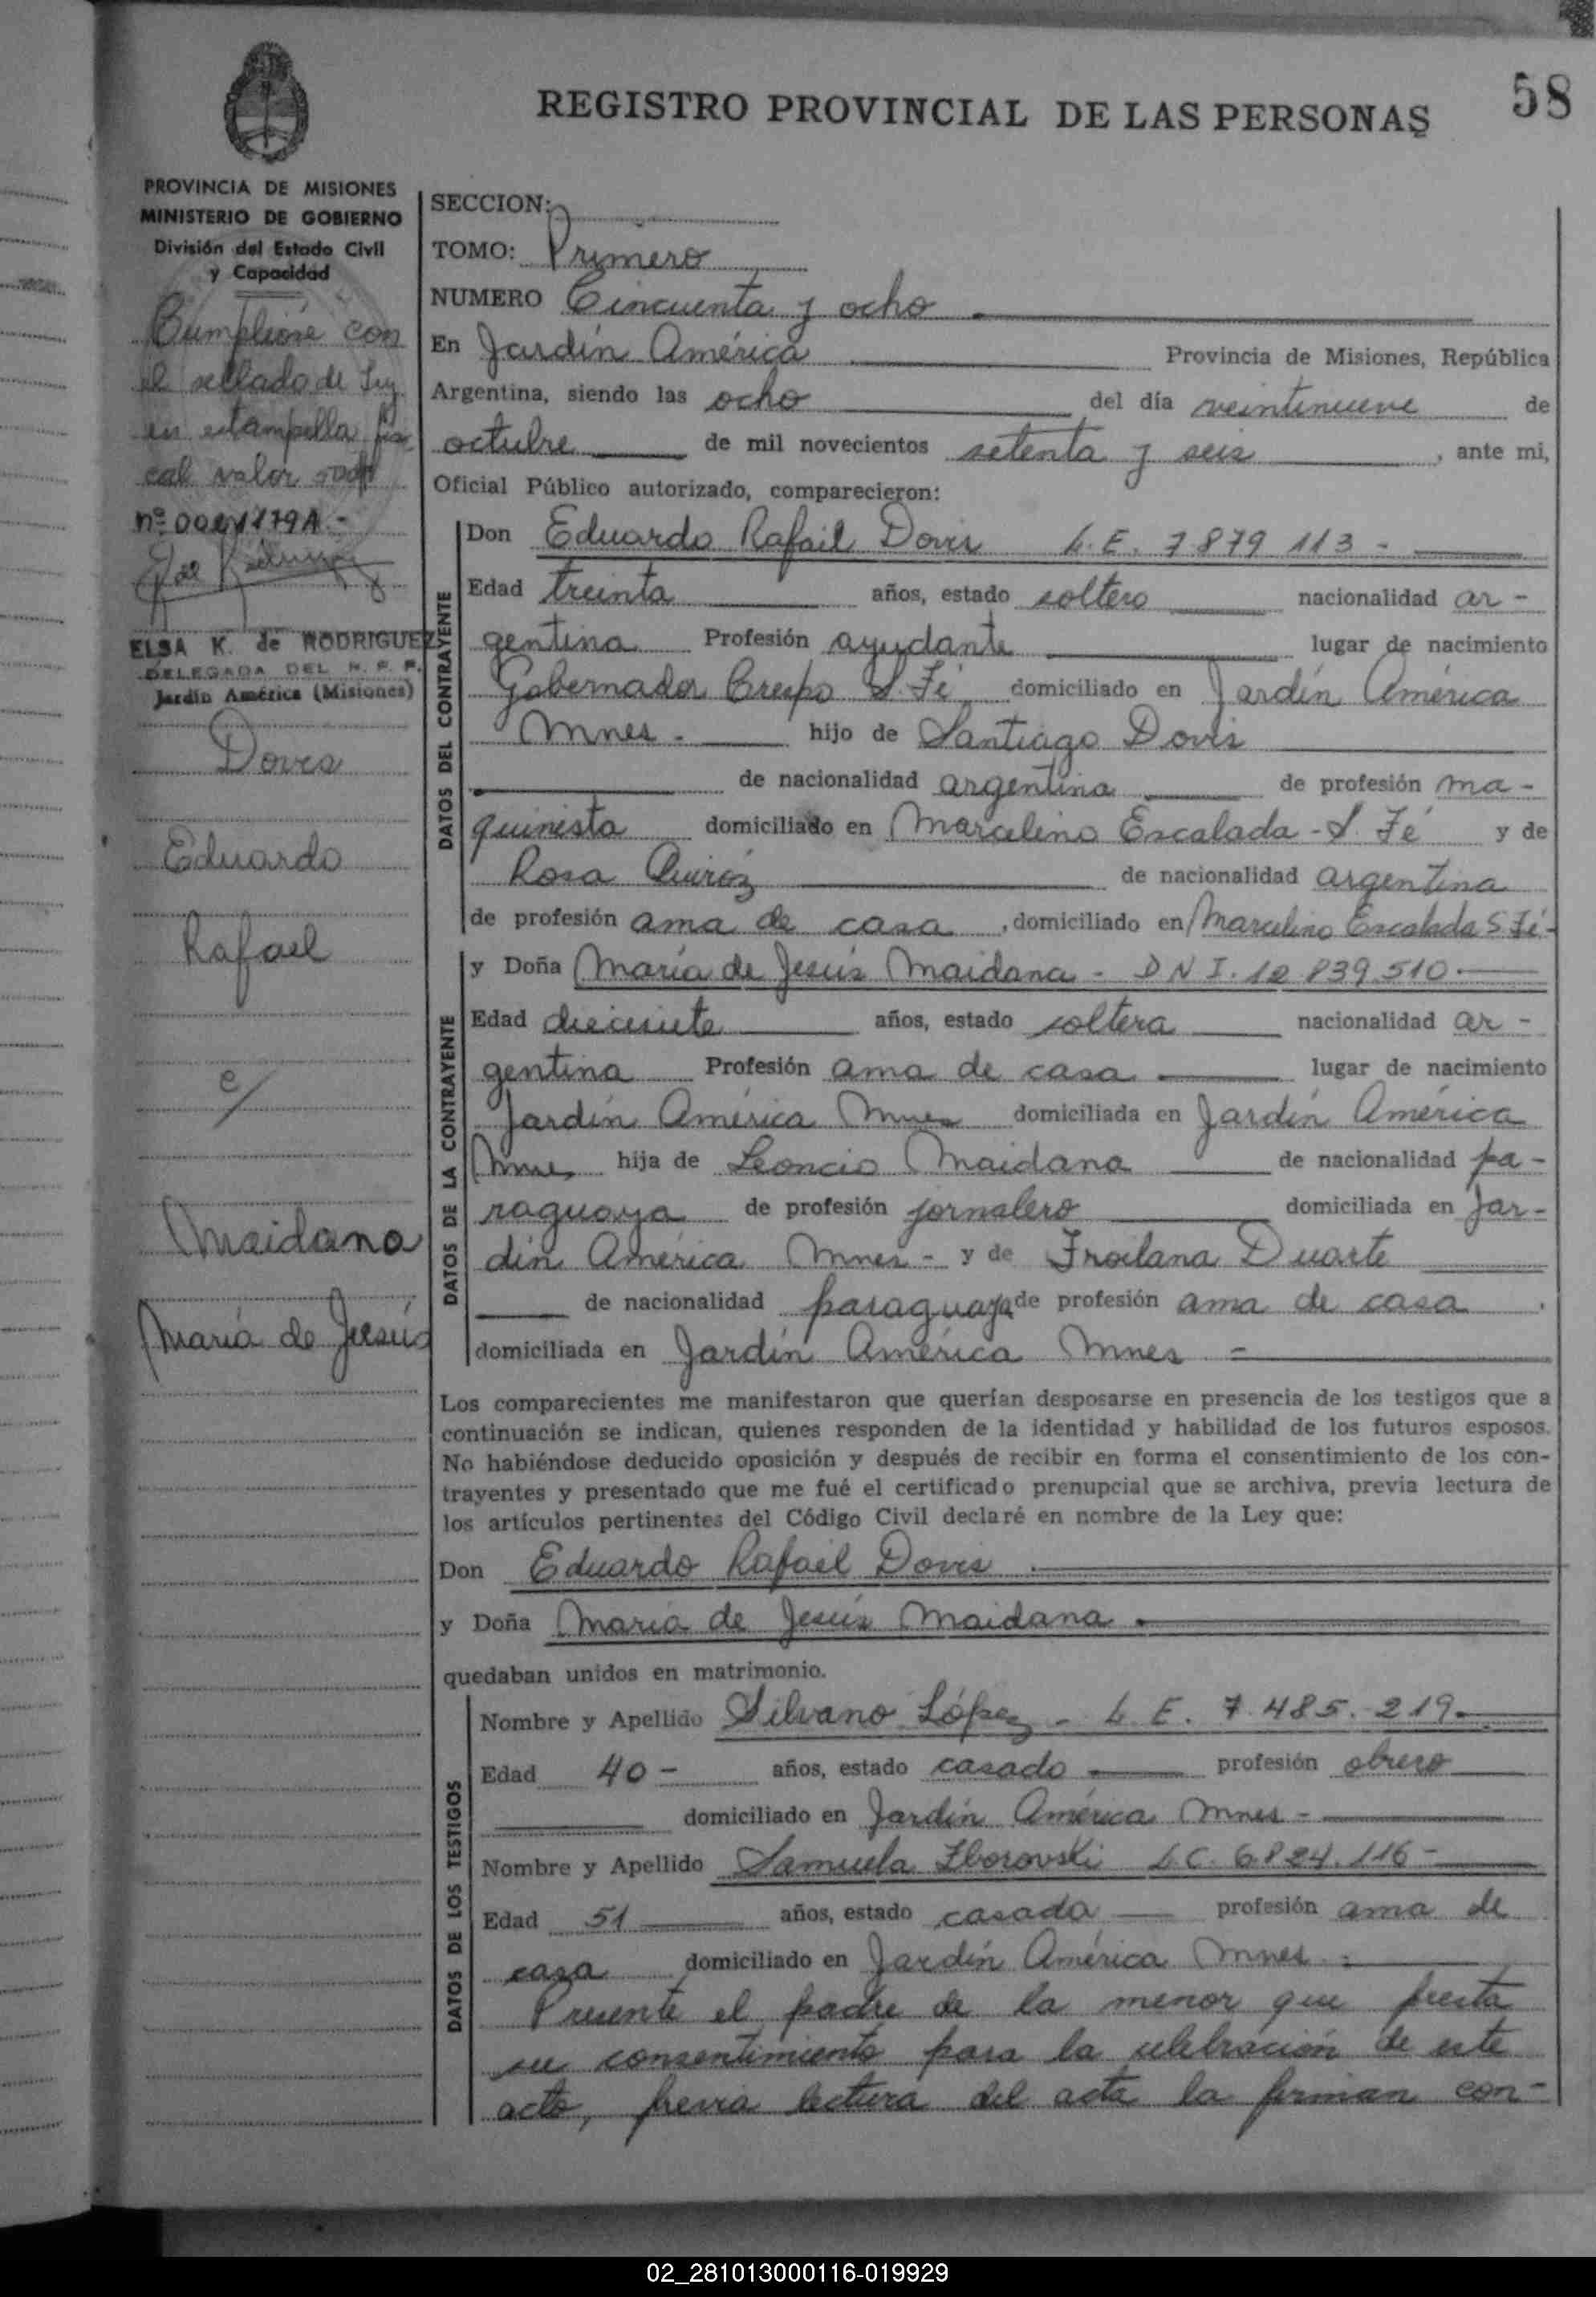 58
REGISTRO PROVINCIAL DE LAS PERSONAS
PROVINCIA DE MISIONES
MINISTERIO DE GOBIERNO
División del Estado Civil
y Capacidad
Cumplióse con
el sellado de Ley
en estampilla fis
cal valor
nº
ELSA K. de RODRIGUEZ
DELEGADA DEL R. P. P.
Jardín América (Misiones)
Dovis
Eduardo
Rafael
c/
Maidana
María de Jesús
SECCION:
TOMO: Primero
NUMERO Cincuenta y ocho
En Jardín América Provincia de Misiones, República
Argentina, siendo las ocho del día veintinueve de
octubre de mil novecientos setenta y seis, ante mi,
Oficial Público autorizado, comparecieron:
DATOS DEL CONTRAYENTE
Don Eduardo Rafael Dovis L.E. 7.879.113 -
Edad treinta años, estado soltero nacionalidad ar-
gentina Profesión ayudante lugar de nacimiento
Gobernador Crespo S. Fé domiciliado en Jardín América
Mnes. hijo de Santiago Dovis
de nacionalidad argentina de profesión ma-
quinista domiciliado en Marcelino Escalada - S. Fé y de
Rosa Quiróz de nacionalidad argentina
de profesión ama de casa, domiciliado en Marcelino Escalada S. Fé-
DATOS DE LA CONTRAYENTE
y Doña María de Jesús Maidana - D N I. 12.839.510.
Edad diecisiete años, estado soltera nacionalidad ar-
gentina Profesión ama de casa lugar de nacimiento
Jardín América Mnes domiciliada en Jardín América
Mnes hija de Leoncio Maidana de nacionalidad pa-
raguaya de profesión jornalero domiciliada en Jar-
dín América Mnes - y de Froilana Duarte
de nacionalidad paraguaya de profesión ama de casa.
domiciliada en Jardín América Mnes -
Los comparecientes me manifestaron que querían desposarse en presencia de los testigos que a
continuación se indican, quienes responden de la identidad y habilidad de los futuros esposos.
No habiéndose deducido oposición y después de recibir en forma el consentimiento de los con-
trayentes y presentado que me fué el certificado prenupcial que se archiva, previa lectura de
los artículos pertinentes del Código Civil declaré en nombre de la Ley que:
Don Eduardo Rafael Dovis
y Doña María de Jesús Maidana
quedaban unidos en matrimonio.
DATOS DE LOS TESTIGOS
Nombre y Apellido Silvano López - L. E. 7.485.219.
Edad 40 - años, estado casado profesión obrero
domiciliado en Jardín América Mnes -
Nombre y Apellido Samuela Zborovski L.C. 6.824.116 -
Edad 51 años, estado casada profesión ama de
casa domiciliado en Jardín América Mnes -
Presente el padre de la menor que presta
su consentimiento para la celebración de este
acto, previa lectura del acta la firman con-
02_281013000116-019929